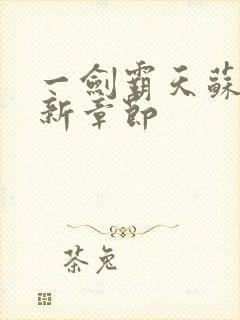 一劍霸天蘇
新章節
茶兔